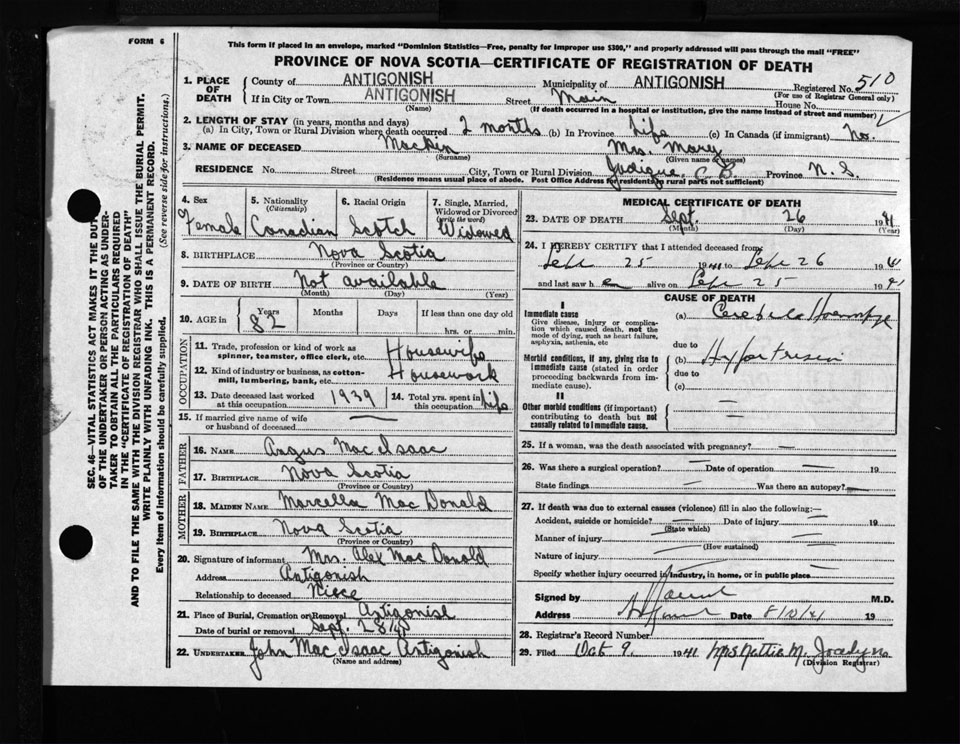 FORM 6
This form if placed in an envelope, marked "Dominion Statistics—Free, penalty for improper use $300," and properly addressed will pass through the mail "FREE"
PROVINCE OF NOVA SCOTIA—CERTIFICATE OF REGISTRATION OF DEATH
1. PLACE OF DEATH County of ANTIGONISH Municipality of ANTIGONISH Registered No. 510
(For use of Registrar General only)
If in City or Town ANTIGONISH Street Main House No.
(Name) (If death occurred in a hospital or institution, give the name instead of street and number)
2. LENGTH OF STAY (in years, months and days)
(a) In City, Town or Rural Division where death occurred 2 months (b) In Province Life (c) In Canada (if immigrant) No.
3. NAME OF DECEASED Mrs. Mary
(Surname) (Given name or names)
RESIDENCE No. Street City, Town or Rural Division Judique C.B. Province N.S.
(Residence means usual place of abode. Post Office Address for residents in rural parts not sufficient)
4. Sex Female
5. Nationality (Citizenship) Canadian
6. Racial Origin Scotch
7. Single, Married, Widowed or Divorced (write the word) Widowed
8. BIRTHPLACE Nova Scotia
(Province or Country)
9. DATE OF BIRTH Not available
(Month) (Day) (Year)
10. AGE in Years 82 Months Days If less than one day old hrs. or min.
OCCUPATION
11. Trade, profession or kind of work as spinner, teamster, office clerk, etc. Housewife
12. Kind of industry or business, as cotton-mill, lumbering, bank, etc. Housework
13. Date deceased last worked at this occupation 1939
14. Total yrs. spent in this occupation Life
15. If married give name of wife or husband of deceased —
FATHER
16. NAME Angus Mac Isaac
17. BIRTHPLACE Nova Scotia
(Province or Country)
MOTHER
18. MAIDEN NAME Marcella Mac Donald
19. BIRTHPLACE Nova Scotia
(Province or Country)
20. Signature of informant Mrs. Alex Mac Donald
Address Antigonish
Relationship to deceased Niece
21. Place of Burial, Cremation or Removal Antigonish
Date of burial or removal Sept. 28
22. UNDERTAKER John Mac Isaac Antigonish
(Name and address)
MEDICAL CERTIFICATE OF DEATH
23. DATE OF DEATH Sept. 26 1941
(Month) (Day) (Year)
24. I HEREBY CERTIFY that I attended deceased from:
Sept 25 1941 to Sept 26 194
and last saw h alive on Sept 25 1941
CAUSE OF DEATH
I
Immediate cause
Give disease, injury or complication which caused death, not the mode of dying, such as heart failure, asphyxia, asthenia, etc
(a)
due to
Morbid conditions, if any, giving rise to immediate cause (stated in order proceeding backwards from immediate cause).
(b)
due to
(c)
II
Other morbid conditions (if important) contributing to death but not causally related to immediate cause.
25. If a woman, was the death associated with pregnancy? —
26. Was there a surgical operation? — Date of operation — 19
State findings — Was there an autopsy? —
27. If death was due to external causes (violence) fill in also the following:—
Accident, suicide or homicide? Date of injury 19
(State which)
Manner of injury
(How sustained)
Nature of injury
Specify whether injury occurred in industry, in home, or in public place
Signed by M.D.
Address Date 8/10/41 19
28. Registrar's Record Number
29. Filed Oct 9. 1941 Mrs Nattie M.
(Division Registrar)
SEC. 46—VITAL STATISTICS ACT MAKES IT THE DUTY
OF THE UNDERTAKER OR PERSON ACTING AS UNDER-
TAKER TO OBTAIN ALL THE PARTICULARS REQUIRED
IN THE "CERTIFICATE OF REGISTRATION OF DEATH"
AND TO FILE THE SAME WITH THE DIVISION REGISTRAR WHO SHALL ISSUE THE BURIAL PERMIT.
WRITE PLAINLY WITH UNFADING INK. THIS IS A PERMANENT RECORD.
Every item of information should be carefully supplied. (See reverse side for instructions.)